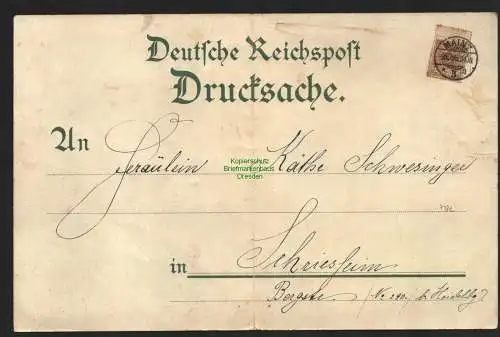 MAINZ
Deutsche Reichspost
Drucksache.
An Fräulein Käthe Schwesinger
Kopierschutz
Briefmarkenbads
Dresden
in Schriesheim
Bergstr. b. Heidelbg